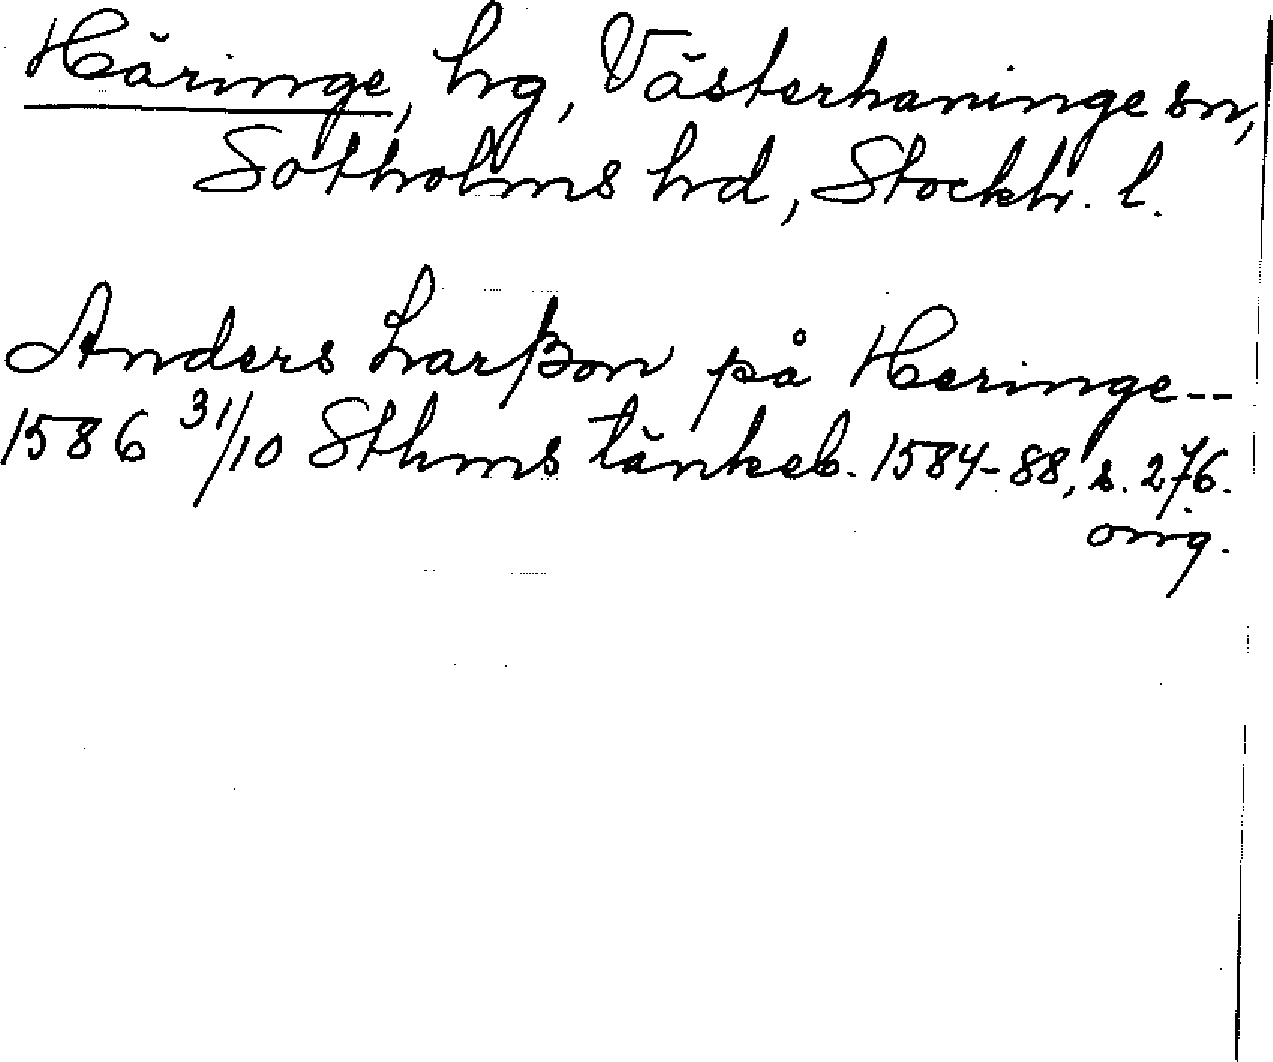 Häringe, hg, Västerhaninge sn,
Sotholms hd, Stockh. l.
Anders Larßon på Heringe--
1586 31/10 Sthms tänkeb. 1584-88, s. 276.
orig.